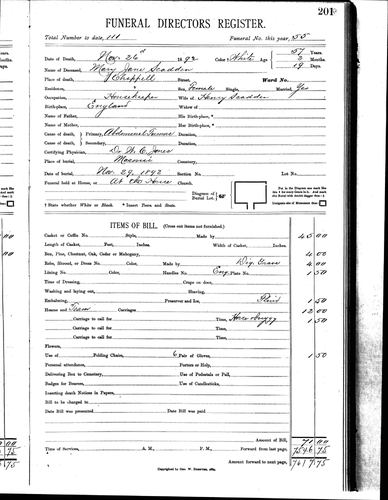 201
FUNERAL DIRECTORS REGISTER.
Total Number to date, 111 Funeral No. this year, 55
Date of Death, Nov. 26th 1892 Color† White Age 57 Years
Name of Deceased, Mary Jane Scadden 2 Months
Place of Death, Chappell 19 Days
Street, Ward No.
Residence, Sex, Female Single, Married, Yes
Occupation, Housekeeper Wife of Henry Scadden
Birth-place, England Widow of
Name of Father, His Birth-place, *
Name of Mother, Her Birth-place, *
Cause of death, Primary, Abdominal Tumor Duration,
Cause of death, Secondary, Duration,
Certifying Physician, Dr. W. C. Jones Address,
Place of burial, Cemetery,
Date of burial, Nov. 29, 1892 Section No. Lot No.
Funeral held at House, or At the House Church.
Diagram of Burial Lot.
† State whether White or Black. * Insert Town and State.
ITEMS OF BILL. (Cross out items not furnished.)
Casket or Coffin No. Style, Made by 45 00
Length of Casket, Feet, Inches. Width of Casket, Inches.
Box, Pine, Chestnut, Oak, Cedar or Mahogany, 4 00
Robe, Shroud, or Dress No. Color, Made by Dig. Grave 4 00
Lining No. Color, Handles No. Eng. Plate No. 1 50
Time of Dressing, Crape on door,
Washing and laying out, Shaving,
Embalming, Preserver and Ice, Fluid 1 50
Hearse and Team Carriages 12 00
Carriage to call for Time, 1 50
Carriage to call for Time,
Carriage to call for Time,
Flowers,
Use of Folding Chairs, 6 Pair of Gloves, 1 50
Personal attendance, Porters or Help,
Delivering Box to Cemetery, Use of Pedestals or Pall,
Badges for Bearers, Use of Candlesticks,
Inserting death Notices in Papers,
Bill to be charged to
Date Bill was presented Date Bill was paid
Amount of Bill, 71 00
Time of Services, A. M., P. M., Forward from last page, 7546 75
Amount forward to next page, 7617 75